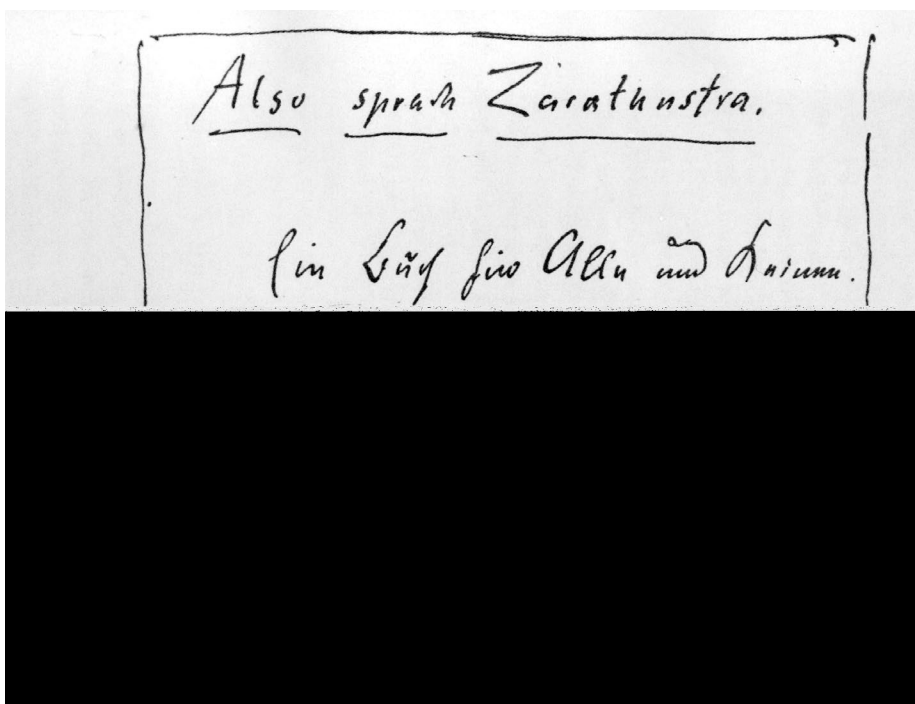 Also sprach Zarathustra.
Ein Buch für Alle und Keinen.